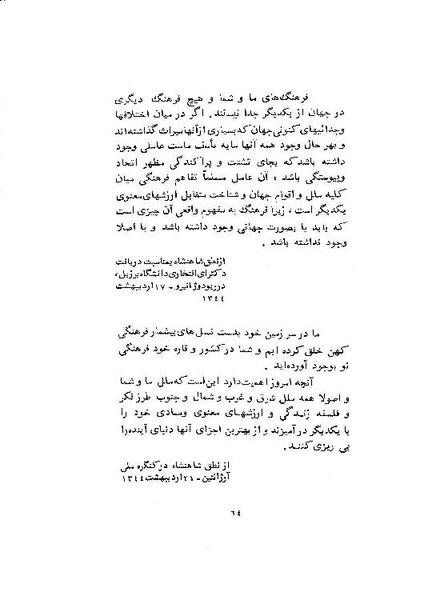 فرهنگ‌های ما و شما و هیچ فرهنگ دیگری
در جهان از یکدیگر جدا نیستند. اگر در میان اختلافها
وجدائیهای کنونی جهان که بسیاری از آنها میراث گذشته‌اند
و بهر حال وجود همه آنها مایه تأسف ماست عاملی وجود
داشته باشد که بجای تشتت و پراکندگی مظهر اتحاد
وپیوستگی باشد ، آن عامل مسلماً تفاهم فرهنگی میان
کلیه ملل و اقوام جهان و شناخت متقابل ارزشهای معنوی
یکدیگر است ، زیرا فرهنگ به مفهوم واقعی آن چیزی است
که باید یا بصورت جهانی وجود داشته باشد و یا اصلا
وجود نداشته باشد .
از نطق شاهنشاه بمناسبت دریافت
دکترای افتخاری دانشگاه برزیل،
در ریودوژانیرو - ۱۷ اردیبهشت
۱۳۴۴
ما در سرزمین خود بدست نسل های بیشمار فرهنگی
کهن خلق کرده ایم و شما در کشور و قاره خود فرهنگی
نو بوجود آورده‌اید.
آنچه امروز اهمیت دارد این است که ملل ما و شما
و اصولا همه ملل شرق و غرب و شمال و جنوب طرز فکر
و فلسفه زندگی و ارزشهای معنوی ومادی خود را
با یکدیگر در آمیزند و از بهترین اجزای آنها دنیای آینده را
پی ریزی کنند.
از نطق شاهنشاه در کنگره ملی
آرژانتین - ۲۱ اردیبهشت ۱۳۴۴
۶۴